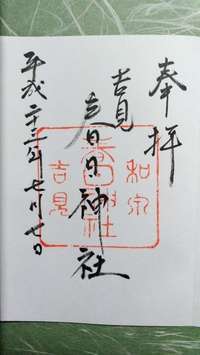 奉拝
吉見
春日神社
平成二十三年七月廿日
和泉
春日神社
吉見